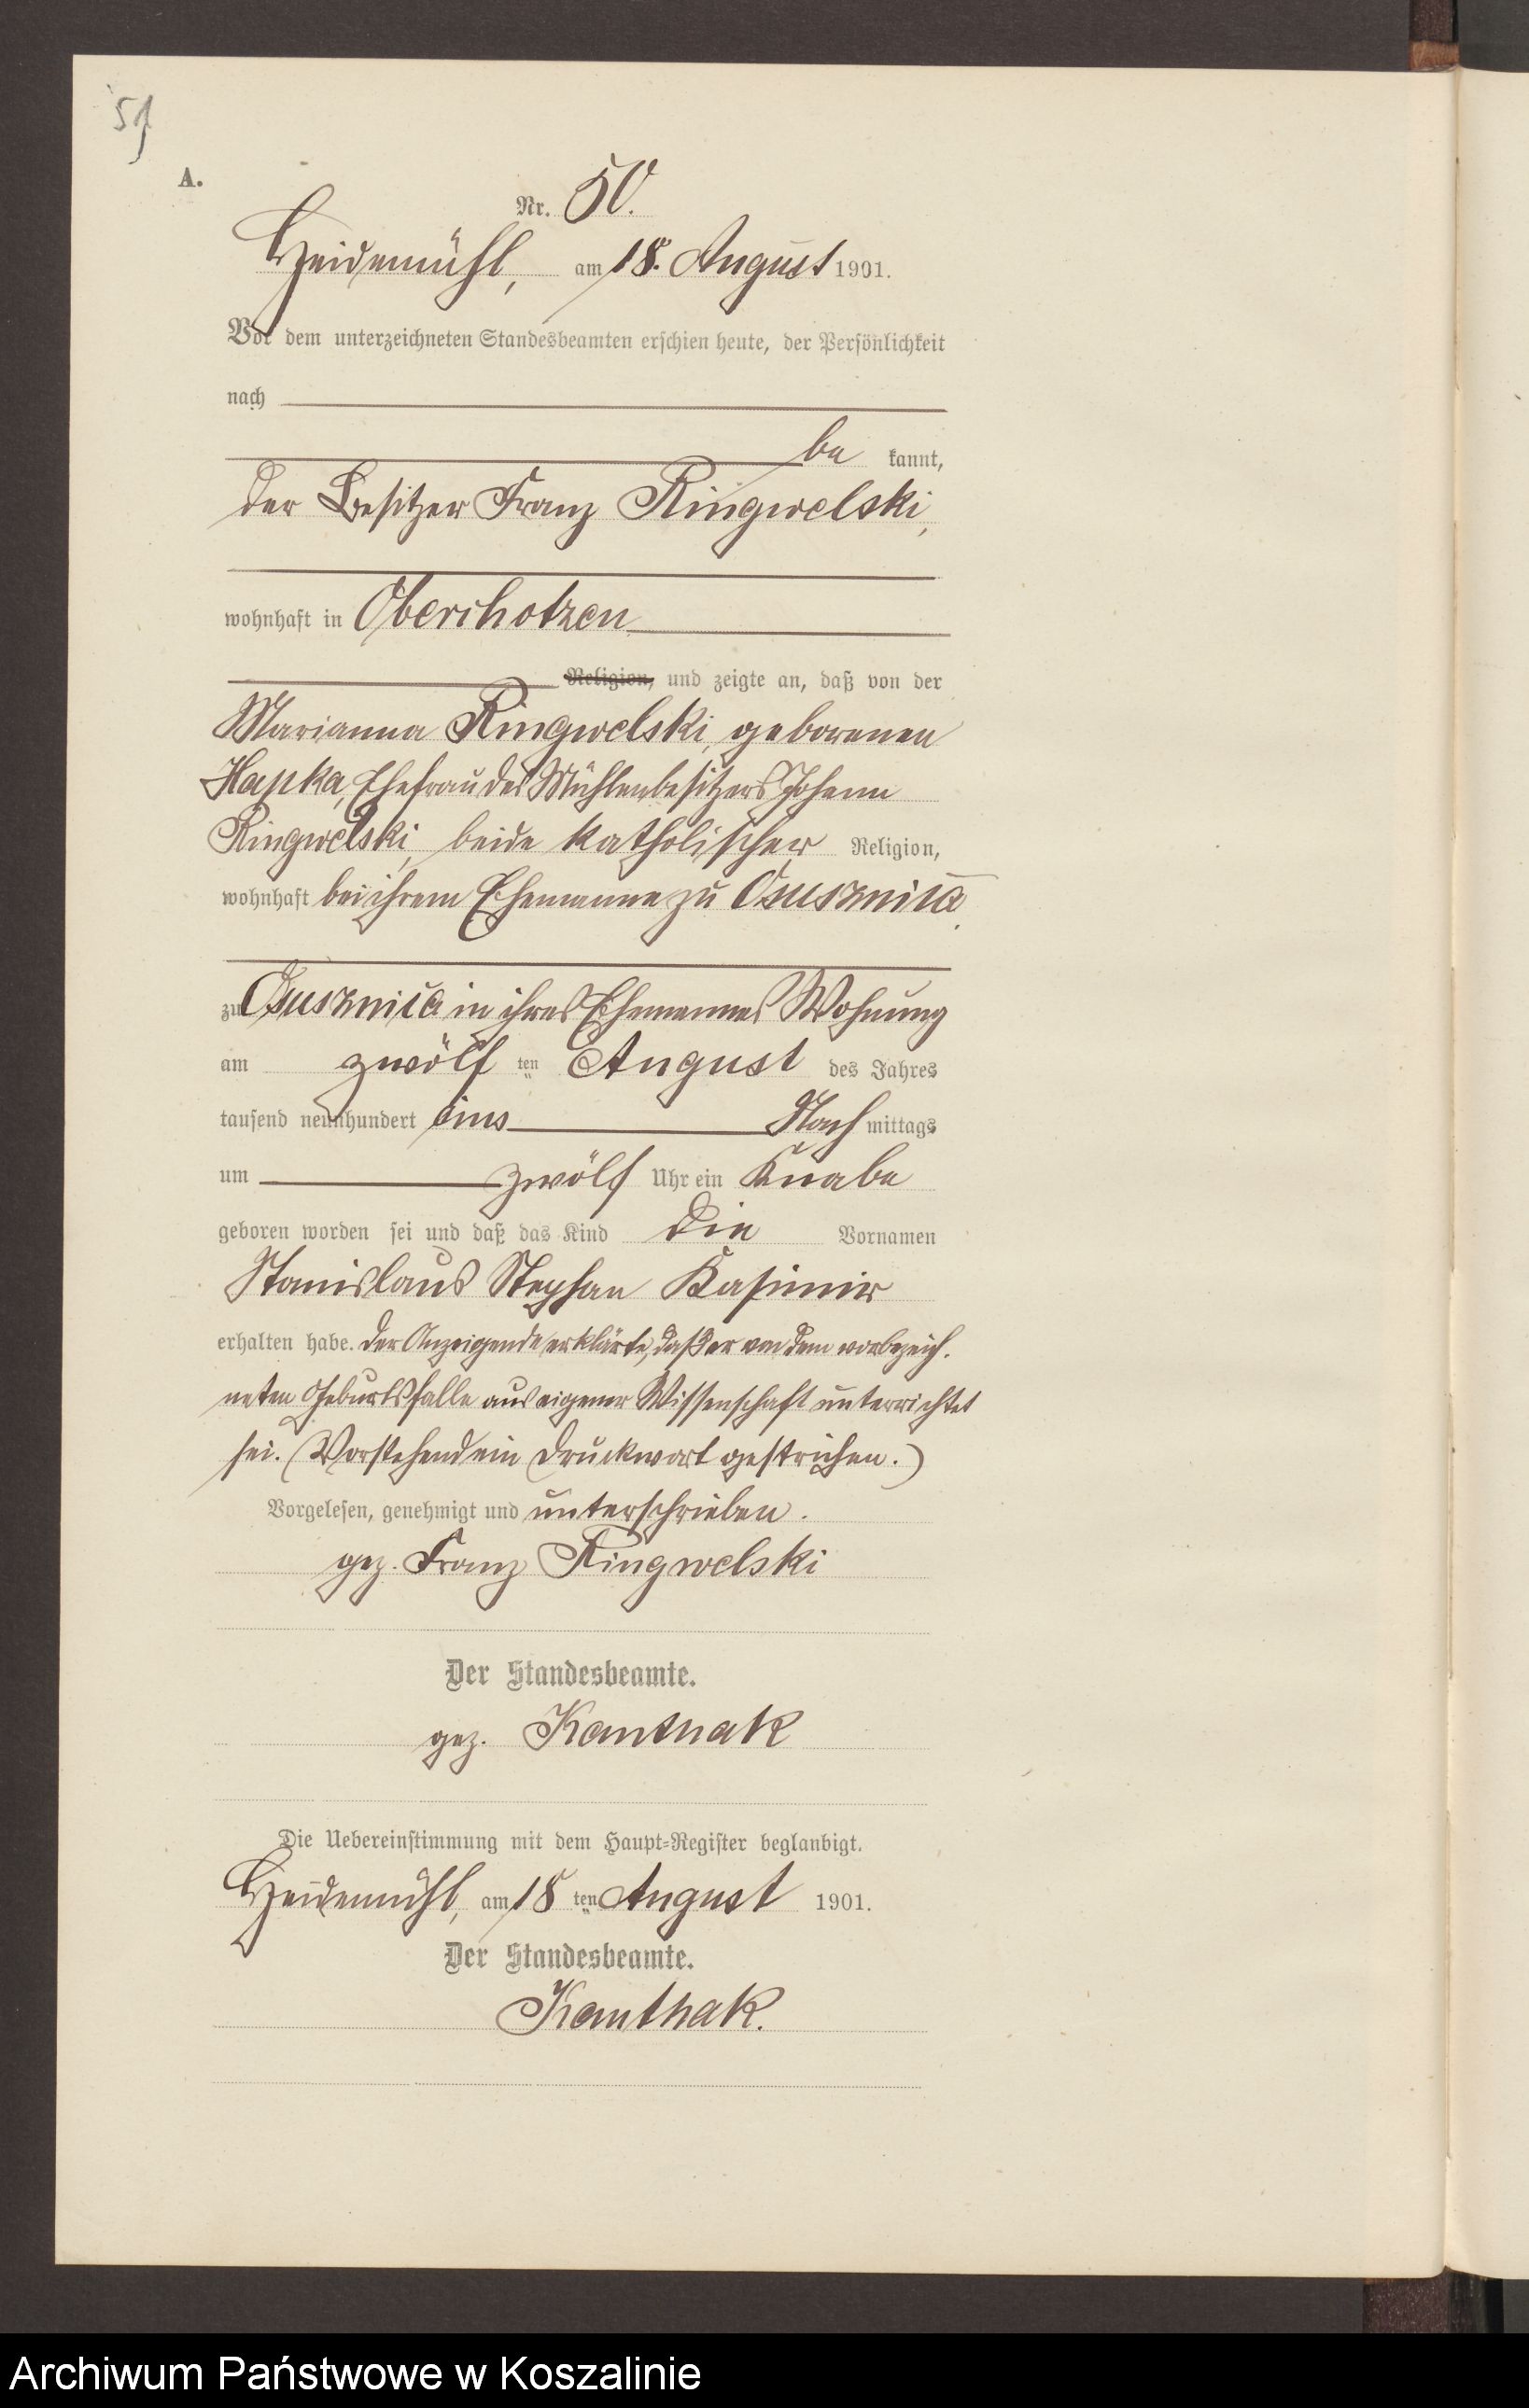 59
A.
Nr. 50.
Heidemühl, am 18. August 1901.
Vor dem unterzeichneten Standesbeamten erschien heute, der Persönlichkeit
nach
be kannt,
der Besitzer Franz Ringwelski,
wohnhaft in Oberchotzen
Religion, und zeigte an, daß von der
Marianna Ringwelski, geborenen
Hapka, Ehefrau des Mühlenbesitzers Johann
Ringwelski, beide katholischer Religion,
wohnhaft bei ihrem Ehemanne zu Osusznica.
zu Osusznica in ihres Ehemannes Wohnung
am zwölf ten August des Jahres
tausend neunhundert eins Nach mittags
um zwölf Uhr ein Knabe
geboren worden sei und daß das Kind die Vornamen
Stanislaus Stephan Kasimir
erhalten habe. Der Anzeigende erklärte, daß er von dem vorbezeich-
neten Geburtsfalle aus eigener Wissenschaft unterrichtet
sei. (Vorstehend ein Druckwort gestrichen.)
Vorgelesen, genehmigt und unterschrieben.
gez. Franz Ringwelski
Der Standesbeamte.
gez. Kanthak
Die Uebereinstimmung mit dem Haupt-Register beglaubigt.
Heidemühl, am 18 ten August 1901.
Der Standesbeamte.
Kanthak.
Archiwum Państwowe w Koszalinie